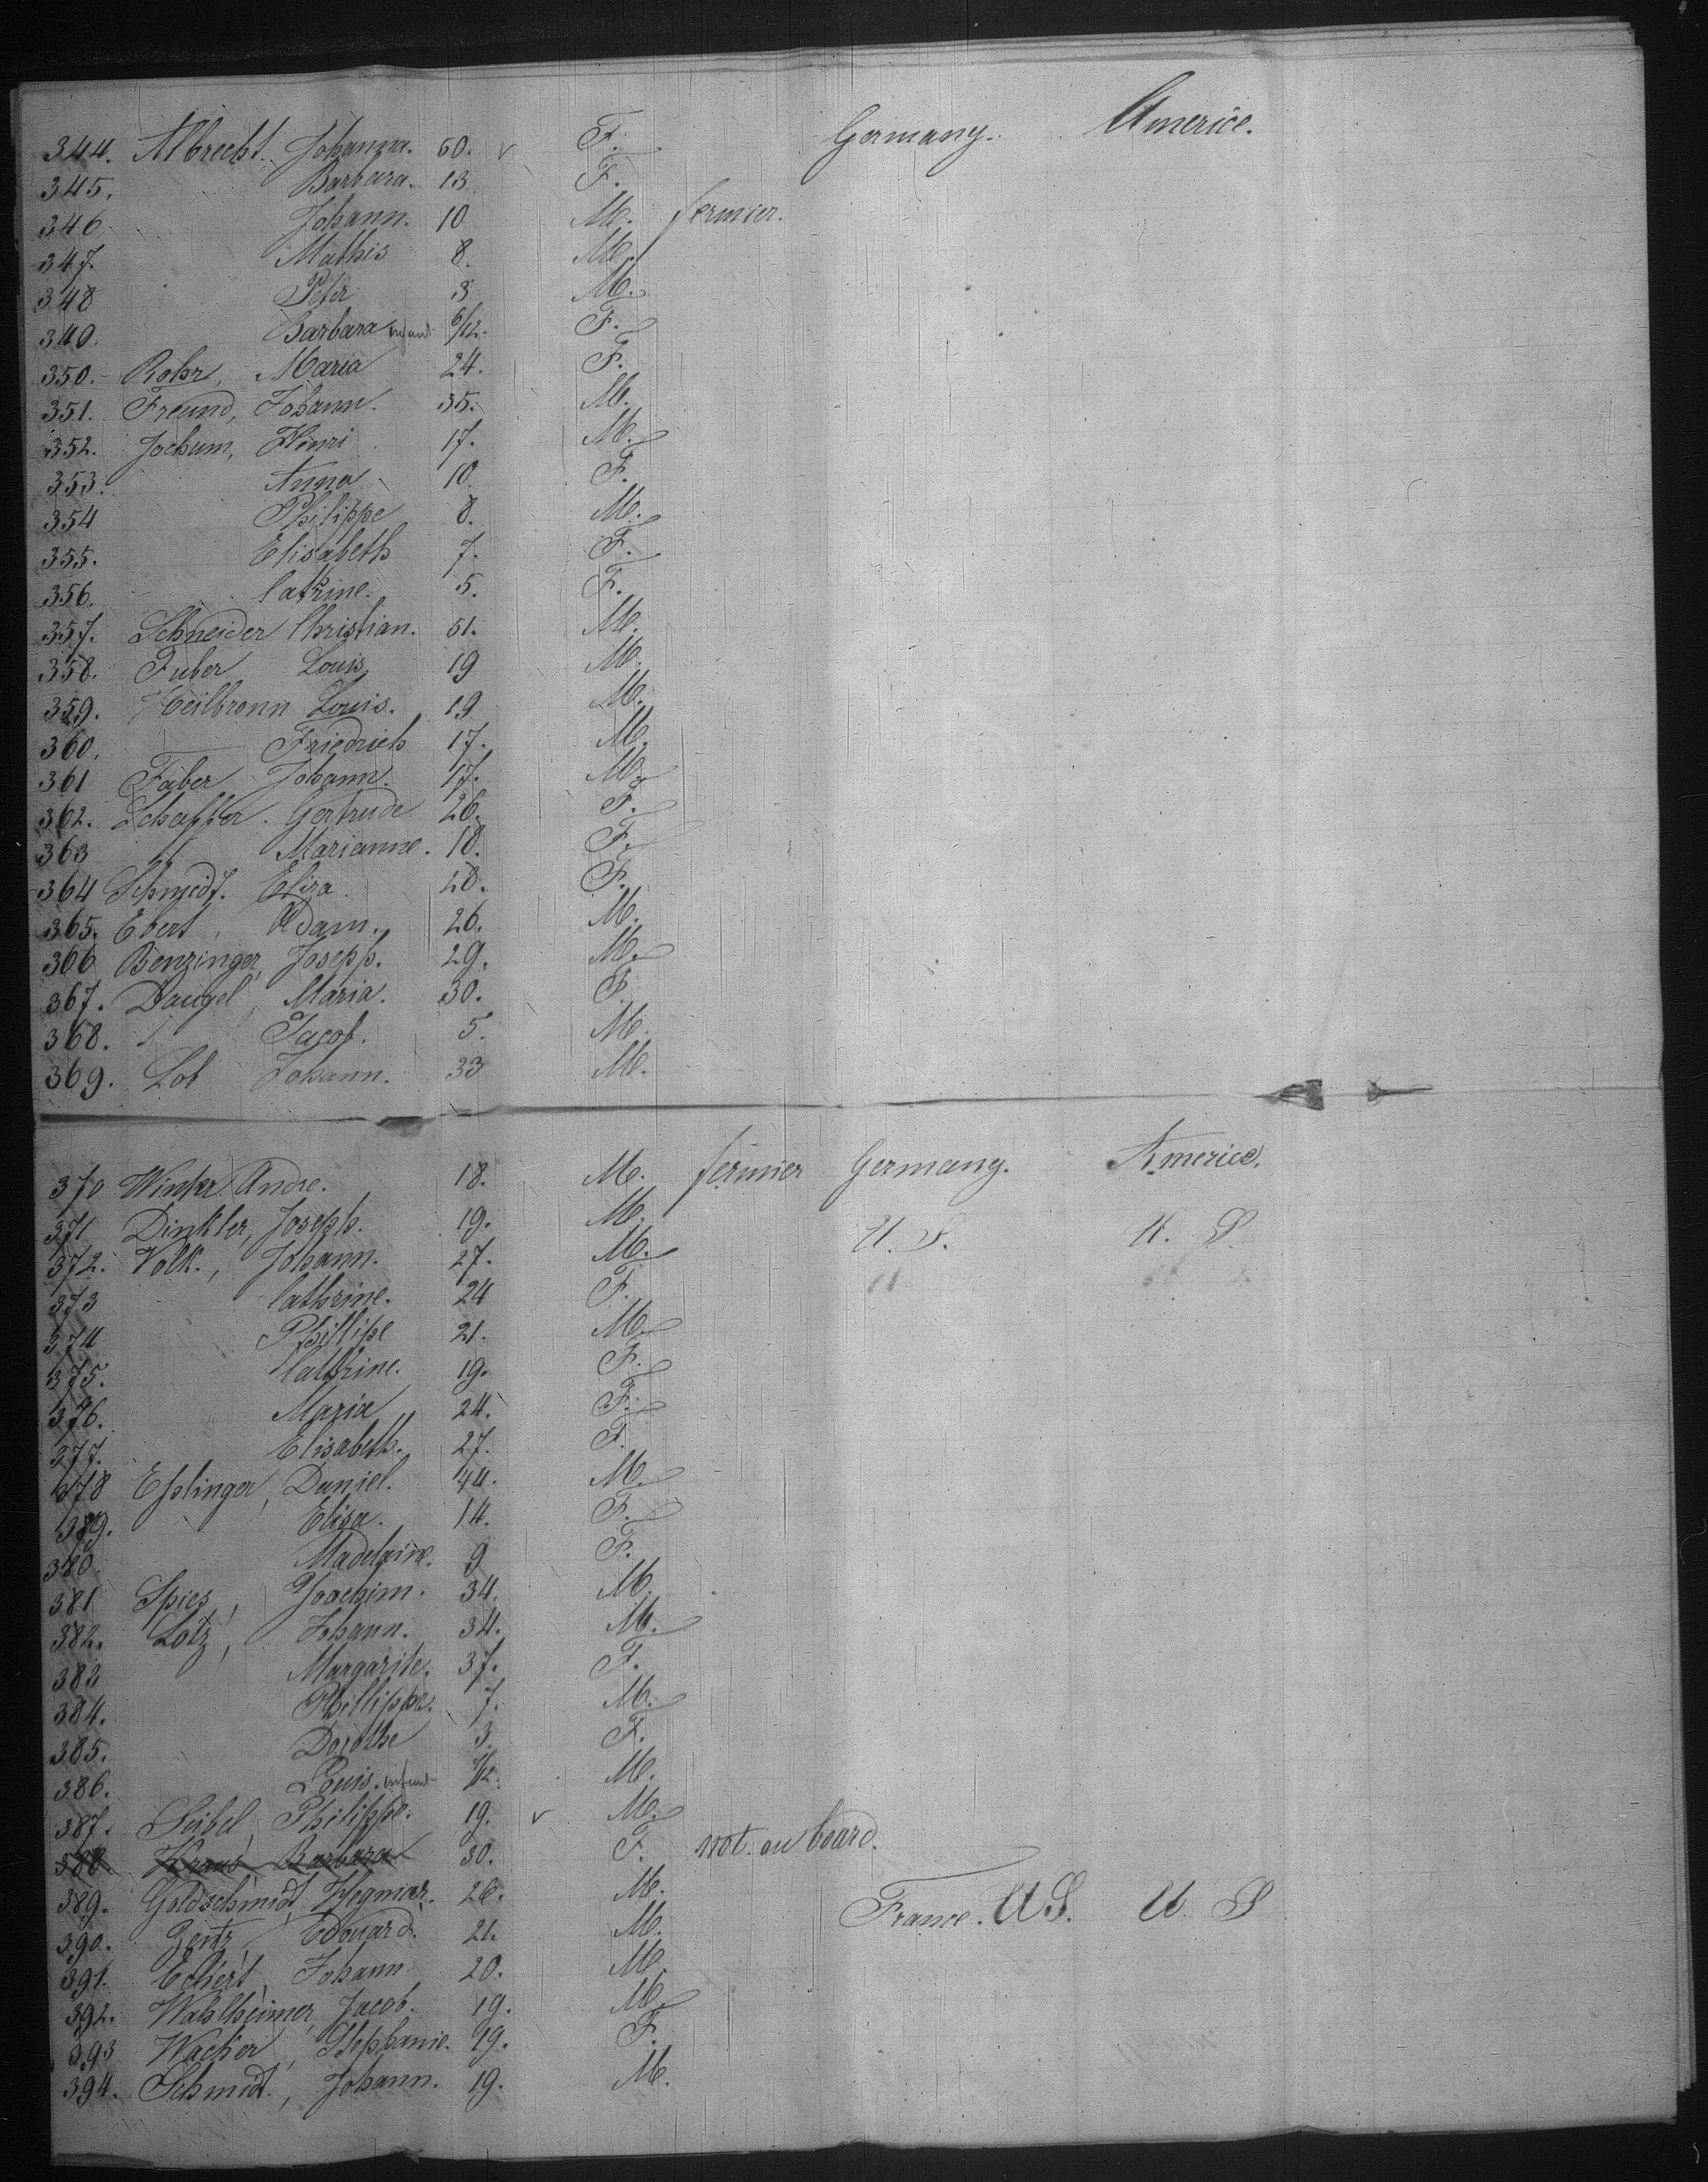 344. Albrecht. Johanna. 50. v F. Germany. America.
345. Barbara. 13 F.
346. Johann. 10 M. fermier.
347. Mathis 8. M.
348 Peter 3 M.
340. Barbara infant 6/12. F.
350. Rohr, Maria 24. F.
351. Freund, Johann. 35. M.
352. Jochum, Henri 17. M.
353. Anna 10. F.
354 Philippe 8. M.
355. Elisabeth 7. F.
356. Cathrine. 5. F.
357. Schneider Christian. 51. M.
358. Fuber Louis 19 M.
359. Heilbronn Louis. 19 M.
360. Friedrich 17. M.
361 Faber Johann. 17. M.
362. Schaffer. Gertrude 26. F.
363 Marianne. 18. F.
364 Schmidt. Eliza. 28. F.
365. Ebert, Adam. 26. M.
366 Benzinger, Joseph. 29. M.
367. Daugel Maria. 30. F.
368. Jacob. 5. M.
369. Lob Johann. 33 M.
370 Winter Andre. 18. M. fermier Germany. America.
371 Dinkler, Joseph. 19. M. U. S. U. S.
372. Volk., Johann. 27. M.
373 Cathrine. 24 F.
374 Phillipe 21. M.
375. Cathrine. 19. F.
376. Maria 24. F.
377. Elisabeth. 27. F.
378 Eßlinger, Daniel. 44. M.
389. Elisa. 14. F.
380 Madelaine. 9 F.
381 Spies, Joachim. 34. M.
382. Lotz, Johann. 34. M.
382 Margarite. 37. F.
384. Phillippe. 7. M.
385. Dorothe 3. F.
386. Louis. infant M.
387. Seibel, Philippe. 19. v M.
388. Kraus Barbara 30. F. not on board.
389. Goldschmidt, 26. M. France. U S. U S
390. Zeitz, Edouard. 21. M.
391. Eckert, Johann 20. M.
392. Wahlheimer, Jacob. 19. M.
393 Wacker, Stephanie. 19. F.
394. Schmidt., Johann. 19. M.